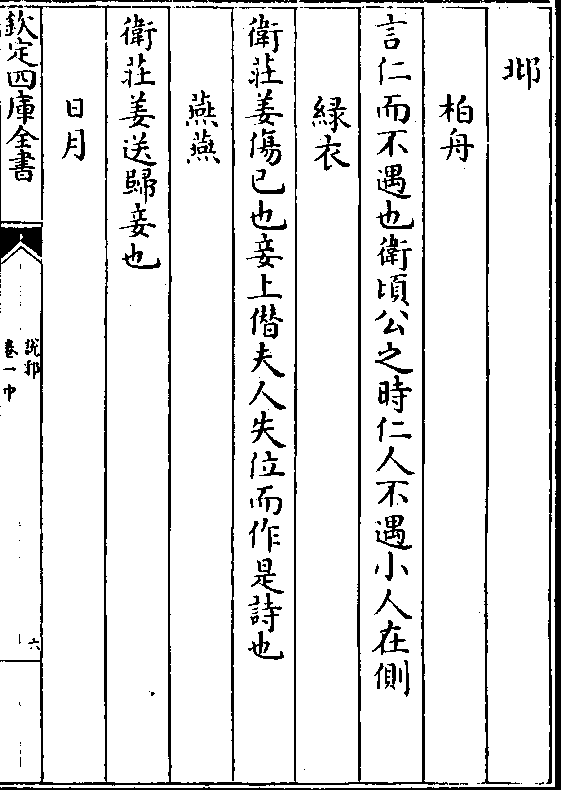 邶
柏舟
言仁而不遇也衛頃公之時仁人不遇小人在側
緑衣
衛莊姜傷已也妾上僭夫人失位而作是詩也
燕燕
衛莊姜送歸妾也
日月
欽定四庫全書
說郛
卷一中
六